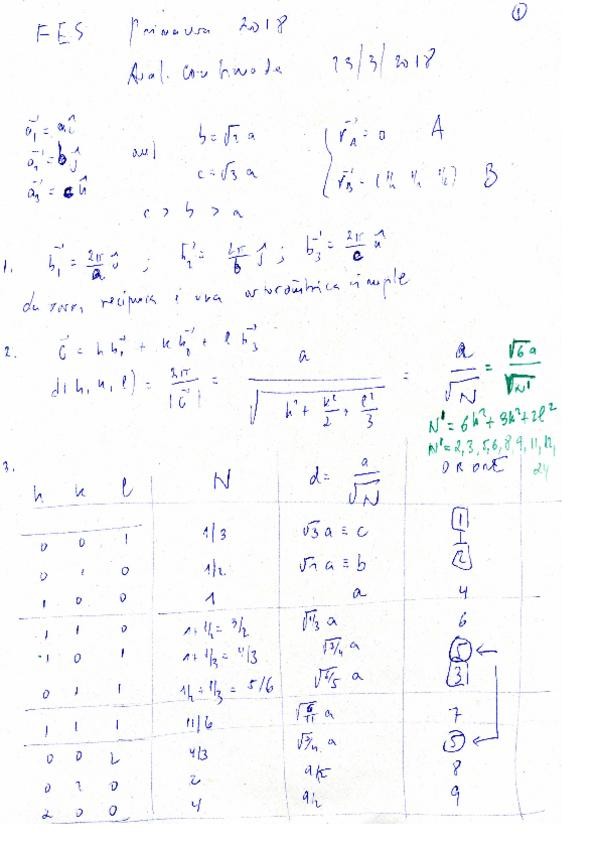 ①
FES Primavera 2018
Aval. continuada 23/3/2018
a⃗₁ = a î
a⃗₂ = b ĵ
a⃗₃ = c k̂
b = √2 a
c = √3 a
c > b > a
r⃗_A = 0 A
r⃗_B = (½ ½ ½) B
1. b⃗₁ = 2π/a î ; b⃗₂ = 2π/b ĵ ; b⃗₃ = 2π/c k̂
recíproca é uma ortorrômbica simple
2. G⃗ = h b⃗₁ + k b⃗₂ + l b⃗₃
d(h, k, l) = 2π/|G⃗| = a/√(h² + k²/2 + l²/3) = a/√N = √6 a/√N'
N' = 6h² + 3k² + 2l²
N' = 2, 3, 5, 6, 8, 9, 11, 12, 24
3.
h k l N d = a/√N ORDRE
0 0 1 1/3 √3 a ≡ c 1
0 1 0 1/2 √2 a ≡ b 2
1 0 0 1 a 4
1 1 0 1+1/2 = 3/2 √(2/3) a 6
1 0 1 1+1/3 = 4/3 √(3/4) a 5
0 1 1 1/2 + 1/3 = 5/6 √(6/5) a 3
1 1 1 11/6 √(6/11) a 7
0 0 2 4/3 √(3/4) a 5
0 2 0 2 a/√2 8
2 0 0 4 a/2 9